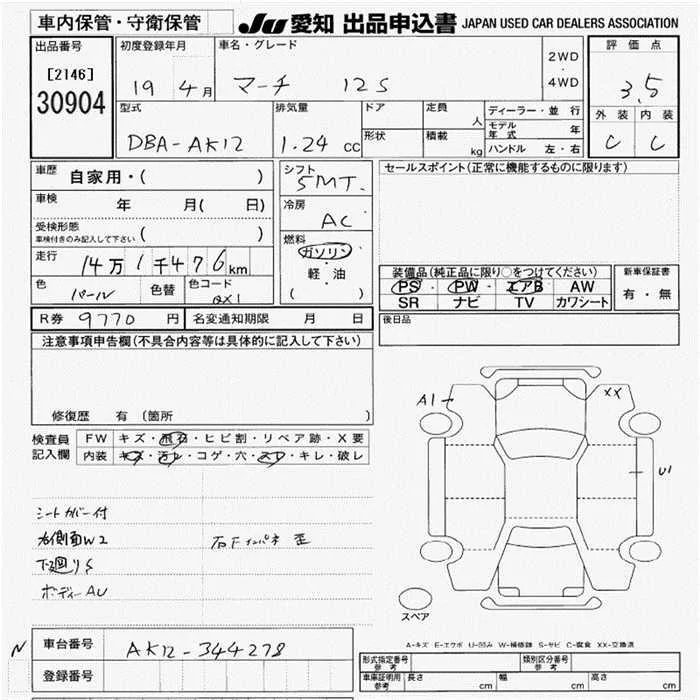 車内保管・守衛保管
JU 愛知 出品申込書 JAPAN USED CAR DEALERS ASSOCIATION
出品番号
[2146]
30904
初度登録年月
19 4月
車名・グレード
マーチ 12S
2WD
・
4WD
評価点
3.5
型式
DBA-AK12
排気量
1.24 cc
ドア
形状
定員
人
積載
kg
ディーラー・並行
モデル年式 年
ハンドル 左・右
外装 内装
C C
車歴 自家用・( )
車検 年 月( 日)
受検形態
車検付きのみ記入して下さい ( )
走行 14万1千476km
色 パール 色替 色コード QX1
シフト
5MT.
冷房
AC
燃料
ガソリン
軽・油
( )
セールスポイント(正常に機能するものに限ります)
装備品(純正品に限り○をつけてください)
PS PW エアB AW
SR ナビ TV カワシート
新車保証書
有・無
R券 9770 円 名変通知期限 月 日
後日品
注意事項申告欄(不具合内容等は具体的に記入して下さい)
修復歴 有 〔箇所 〕
検査員
記入欄
FW キズ・飛石・ヒビ割・リペア跡・X要
内装 キズ・汚レ・コゲ・穴・スレ・キレ・破レ
シートカバー付
右側面W2
下廻りS
ボディーAU
A1
XX
U1
スペア
A-キズ E-エクボ U-凹み W-補修跡 S-サビ C-腐食 XX-交換済
N
車台番号 AK12-344278
登録番号
形式指定番号
参考
類別区分番号
参考
車庫証明用
参考
長さ cm 幅 cm 高さ cm